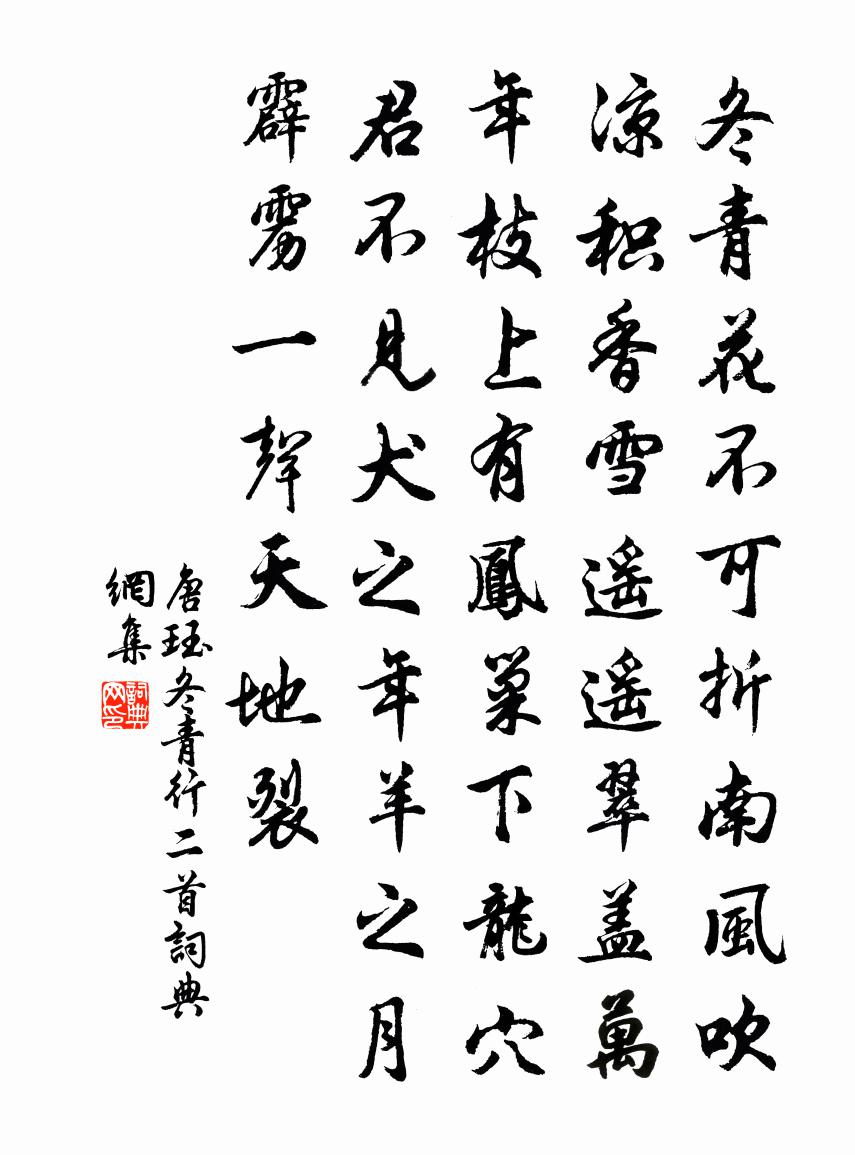 冬青花不可折南風吹
涼积香雪遥遥翠盖萬
年枝上有鳳巢下龍穴
君不見犬之年羊之月
霹雳一聲天地裂
唐珏冬青行二首詞典
網集
詞典
网印